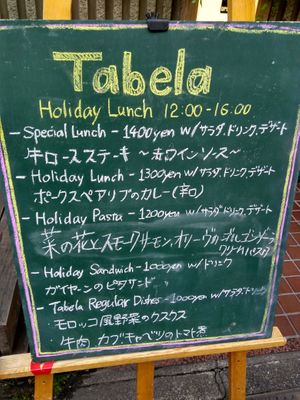 Tabela
Holiday Lunch 12:00-16:00
- Special Lunch - 1400yen w/サラダ、ドリンク、デザート
牛ロースステーキ 〜赤ワインソース〜
- Holiday Lunch - 1300yen w/サラダ、ドリンク、デザート
ポークスペアリブのカレー(辛口)
- Holiday Pasta - 1200yen w/サラダ、ドリンク、デザート
菜の花とスモークサーモン、オリーヴの ゴルゴンゾーラ
クリームパスタ
- Holiday Sandwich - 1000yen w/ドリンク
ガイヤーンのピタサンド
- Tabela Regular Dishes - 1000yen w/サラダ、ドリンク
・モロッコ風野菜のクスクス
・牛肉 カブ キャベツのトマト煮